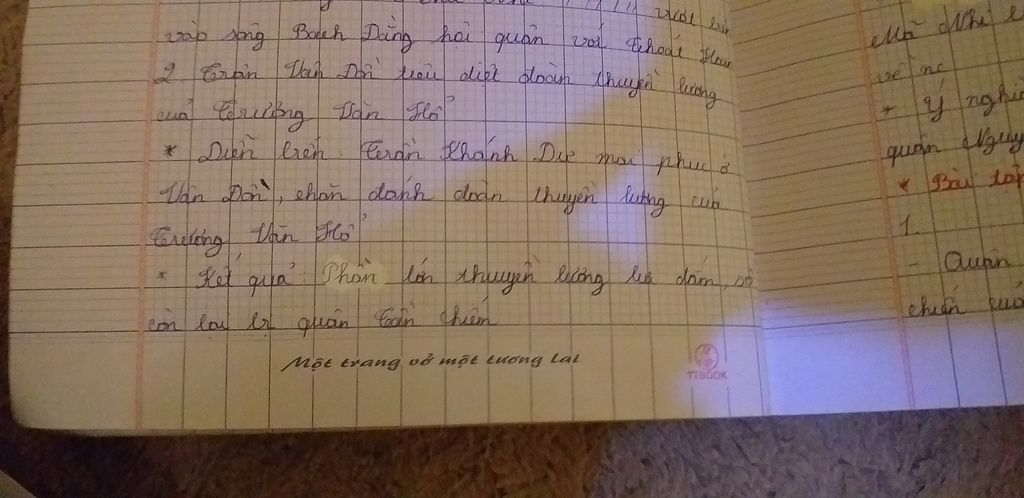 vào sông Bạch Đằng hội quân với Thoát Hoan
2. Trận Vân Đồn tiêu diệt đoàn thuyền lương
của Trương Văn Hổ
* Diễn biến Trần Khánh Dư mai phục ở
Vân Đồn, chặn đánh đoàn thuyền lương của
Trương Văn Hổ
* Kết quả Phần lớn thuyền lương bị đắm, số
còn lại bị quân Trần chiếm
Một trang vở một tương lai
TTBOOK
Mã Nhi
về nc
* Ý nghĩa
quân Nguy
* Bài tập
1.
- Quân
chiến